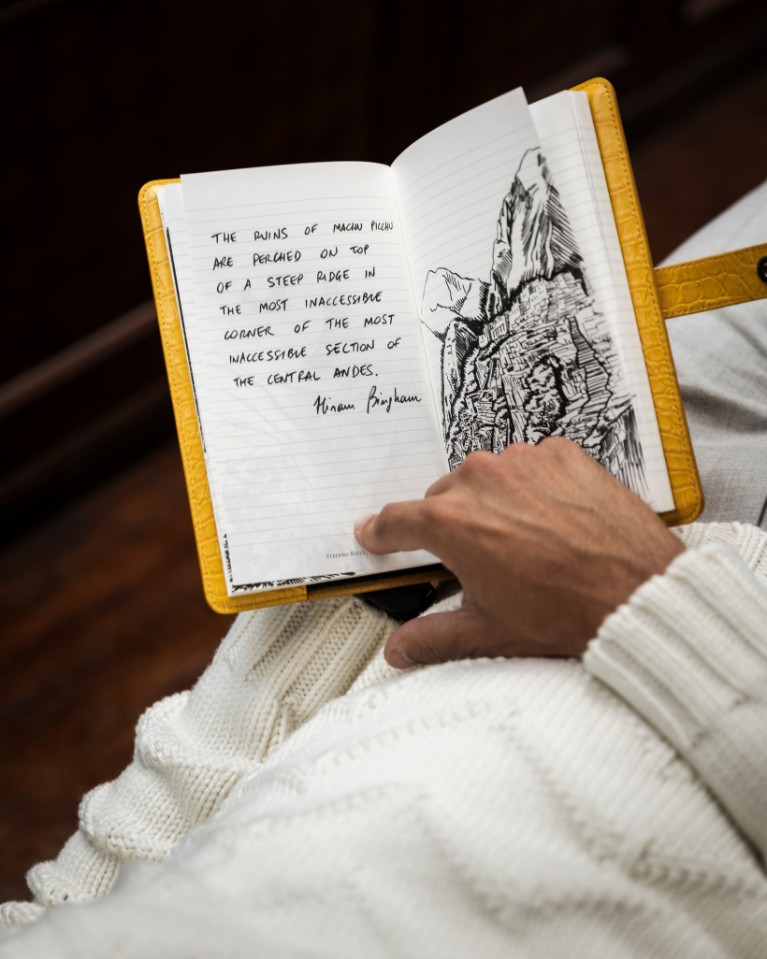 THE RUINS OF MACHU PICCHU
ARE PERCHED ON TOP
OF A STEEP RIDGE IN
THE MOST INACCESSIBLE
CORNER OF THE MOST
INACCESSIBLE SECTION OF
THE CENTRAL ANDES.
Hiram Bingham
STEFANO